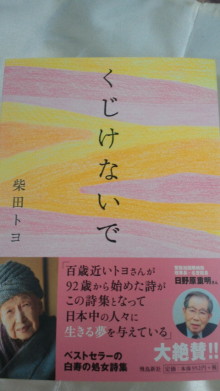 くじけないで
柴田トヨ
「百歳近いトヨさんが
92歳から始めた詩が
この詩集となって
日本中の人々に
生きる夢を与えている」
日野原重明さん
大絶賛!!
ベストセラーの
白寿の処女詩集
飛鳥新社